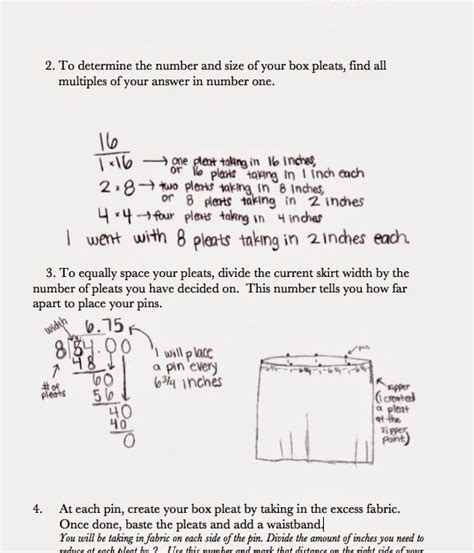 2. To determine the number and size of your box pleats, find all
multiples of your answer in number one.
16
1×16 → one pleat taking in 16 inches,
or 16 pleats taking in 1 inch each
2×8 → two pleats taking in 8 inches,
or 8 pleats taking in 2 inches
4×4 → four pleats taking in 4 inches
I went with 8 pleats taking in 2 inches each.
3. To equally space your pleats, divide the current skirt width by the
number of pleats you have decided on. This number tells you how far
apart to place your pins.
width
6.75
8 54.00
48
60
56
40
40
0
# of
pleats
I will place
a pin every
6 3/4 inches
pin
zipper
(i created
a pleat
at the
zipper
point)
4. At each pin, create your box pleat by taking in the excess fabric.
Once done, baste the pleats and add a waistband.
You will be taking in fabric on each side of the pin. Divide the amount of inches you need to
reduce at each pleat by 2. Use this number and mark that distance on the right side of your